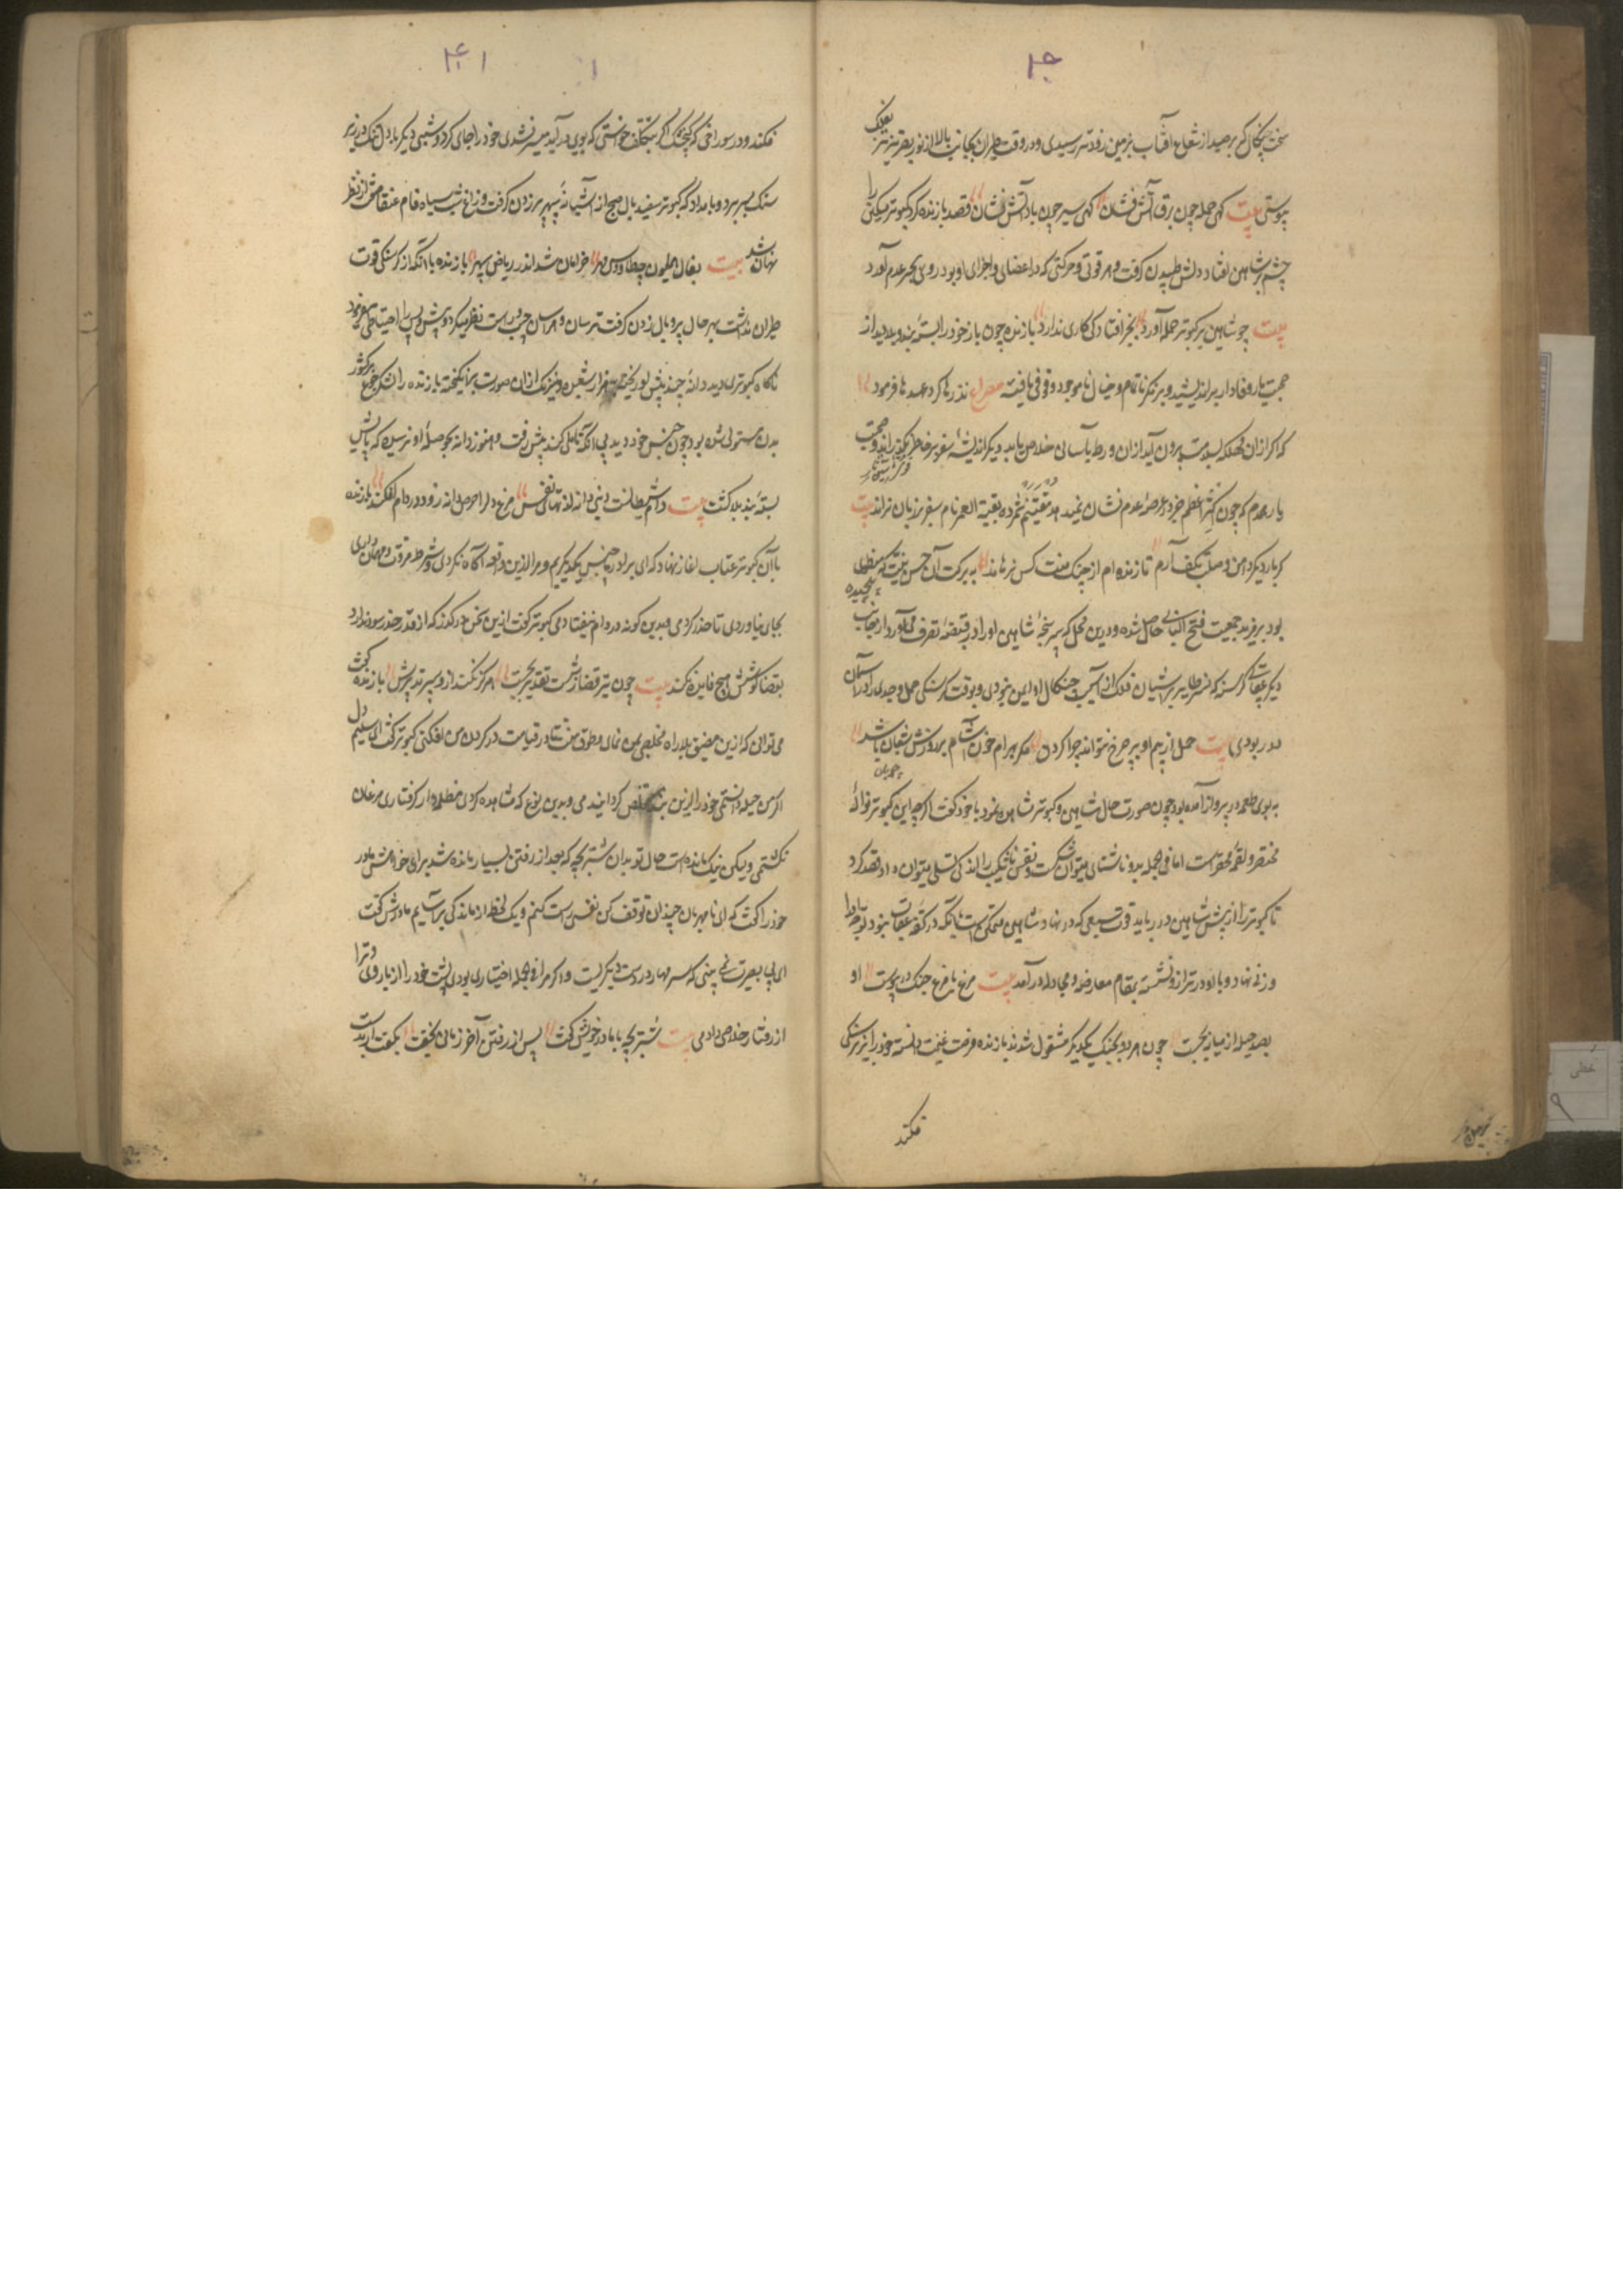 سخت چنگال که بر صید از شعاع آفتاب بزمین زودتر رسیدی و در وقت طیران بجانب بالا از نور بصر تیزتر بفلک
پیوستی بیت کهی حمله چون برق آتش فشان کهی سیر چون باد آتش نشان قصد بازنده کرد کبوتر مسکین را
چشم بر شاهین افتاد دلش طپیدن کرفت و هر قوتی و حرکتی که در اعضای و اجزای او بود روی بحیز عدم آورد
بیت چو شاهین بر کبوتر حمله آورد بجز افتادکی کاری ندارد بازنده چون باز خود را بستهٔ بند بلا دید از
یار وفادار براندیشید و بر فکر ناتمام و خیال ناموجه وقوفی یافته مصراع نذرها کرد و عهدها فرمود
که اکر از آن مهلکه بسلامت بیرون آید و از آن ورطه بآسانی خلاص یابد دیکر اندیشهٔ سفر بر خاطر نکذراند و صحبت
یار همدم که چون اعظم جز در عرصهٔ عدم نشان نمیدهد مغتنم شمرده بقیة العمر نام سفر بر زبان نراند بیت
کر بار دیکر دامن وصلت بکف آرم تا زنده‌ام از چنک منت کس نرهاند به برکت آن حسن نیت که
بود جمعیت فتح البابی حاصل شده و در این محل که سرپنجهٔ شاهین او را در قبضهٔ تصرف می‌آورد از جانب
دیکر عقابی کرسنه که نسر طایر بر آشیان فلک از آسیب چنکال او ایمن نبودی و بوقت کرسنکی حمل و جدی را از آسمان
در ربودی بیت حمل از بیم او بر چرخ نتواند چرا کردن مکر بهرام خون آشام هر روزش شبان باشد
به بوی طعمه در پرواز آمده بود چون صورت حال شاهین و کبوتر مشاهده نمود با خود کفت اکرچه این کبوتر نوالهٔ
مختصر و لقمهٔ محقر است اما فی الجمله بدو ناشتائی میتوان شکست و نفس ناشکیب را اندکی تسلی میتوان داد قصد کرد
تا کبوتر را از پیش شاهین در رباید قوت سبعی که در نهاد شاهین متمکن است با آنکه در کفهٔ عقاب نبود
وزنی نهاد و با او در ترازو نشسته بمقام معارضه و مجادله درآمد بیت مرغ با مرغ جنک در پیوست او
بصد حیله از میانه بجست چون هر دو بجنک یکدیکر مشغول شدند بازنده فرصت غنیمت دانسته خود را زیر سنکی
فکند
فکند و در سوراخی که کنجشک اکر بتکلف خواستی که بوی درآید میسر نشدی خود را جای کرد و شبی دیکر با دل تنک در زیر
سنک بسر برد و بامداد که کبوتر سفید بال صبح از آشیانهٔ سپهر پریدن کرفت و زاغ شب سیاه فام عنقا صفت از نظر
نهان شد بیت بفال همایون چو طاوس مهر خرامان شد اندر ریاض سپهر بازنده با آنکه از کرسنکی قوت
طیران نداشت بهر حال پر و بال زدن کرفت ترسان و هراسان چپ و راست نظر میکرد و پیش و پس را احتیاطی می نمود
ناکاه کبوتری دید دانهٔ چند پیش او ریخته و هزار شعبده و نیرنک از آن صورت برانکیخته بازنده را لشکر جوع بر کشور
بدن مستولی شده بود چون جنس خود دید بی آنکه تأملی کند پیش رفت و هنوز دانه بحوصلهٔ او نرسیده که پایش
بستهٔ بند بلا کشت بیت دام شیطانست دنیی دانه لذتهای نفس مرغ دل را حرص دانه زود در دام افکند بازنده
با آن کبوتر عتاب آغاز نهاد که ای برادر ما جنس یکدیکریم و مرا از این واقعه آکاه نکردی و شرط مروت و مهمانداری
بجای نیاوردی تا حذر کردمی و بدین کونه در دام نیفتادمی کبوتر کفت از این سخن درکذر که از قدر حذر سود ندارد
بقضا کوشش هیچ فایده نکند بیت چون تیر قضا ز شست تقدیر بجست هرکز نکند از و سپر تدبیرش بازنده کفت
می‌توانی که از این مضیق بلا راه مخلصی بمن نمای و طوق منت تا روز قیامت در کردن من افکنی کبوتر کفت ای سلیم دل
اکر من حیله دانستمی خود را از این بند مخلص کردانیدمی و بدین نوع که مشاهده کردی کرفتاری مرغان
نکشتمی و لیکن نیک مانده است حال تو بدان شتربچه که بعد از رفتن بسیار مانده شد بزاری مادر
خود را کفت که ای نامهربان چندان توقف کن نفسی راست کنم و یک لحظه از ماندکی برآسایم مادرش کفت
ای بی بصیرت نمی بینی که سر مهار در دست دیکریست و اکر مرا فی الجمله اختیاری بودی پشت خود را از بار و پای ترا
از رفتار خلاص دادمی بیت شتربچه با مادر خویش کفت پس از رفتن آخر زمانی بخفت بکفت ار بدست